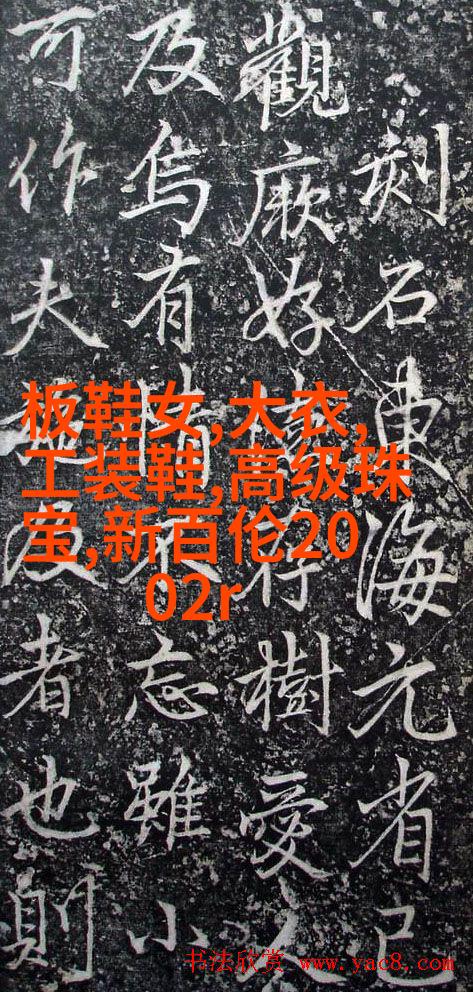 刻石東海元省己
觀厥好樹愛
及烏有情不忘雖小
可作夫及者也則
板鞋女,大衣,
工装鞋,高级珠
宝,新百伦20
02r
书法欣赏 www.yac8.com